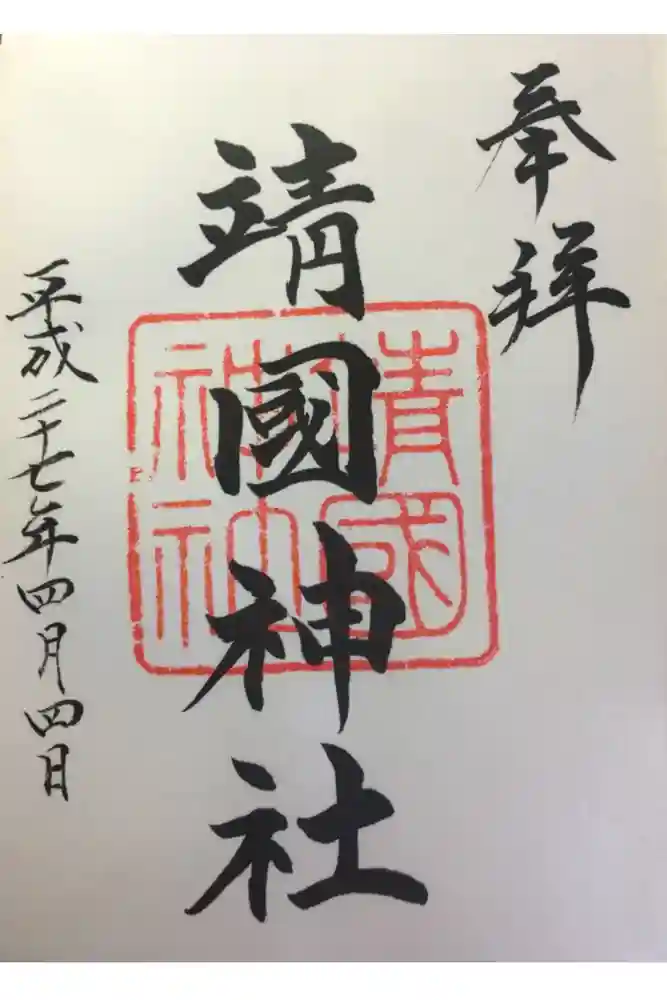 奉拝
靖國神社
靖國
神社
平成二十七年四月四日